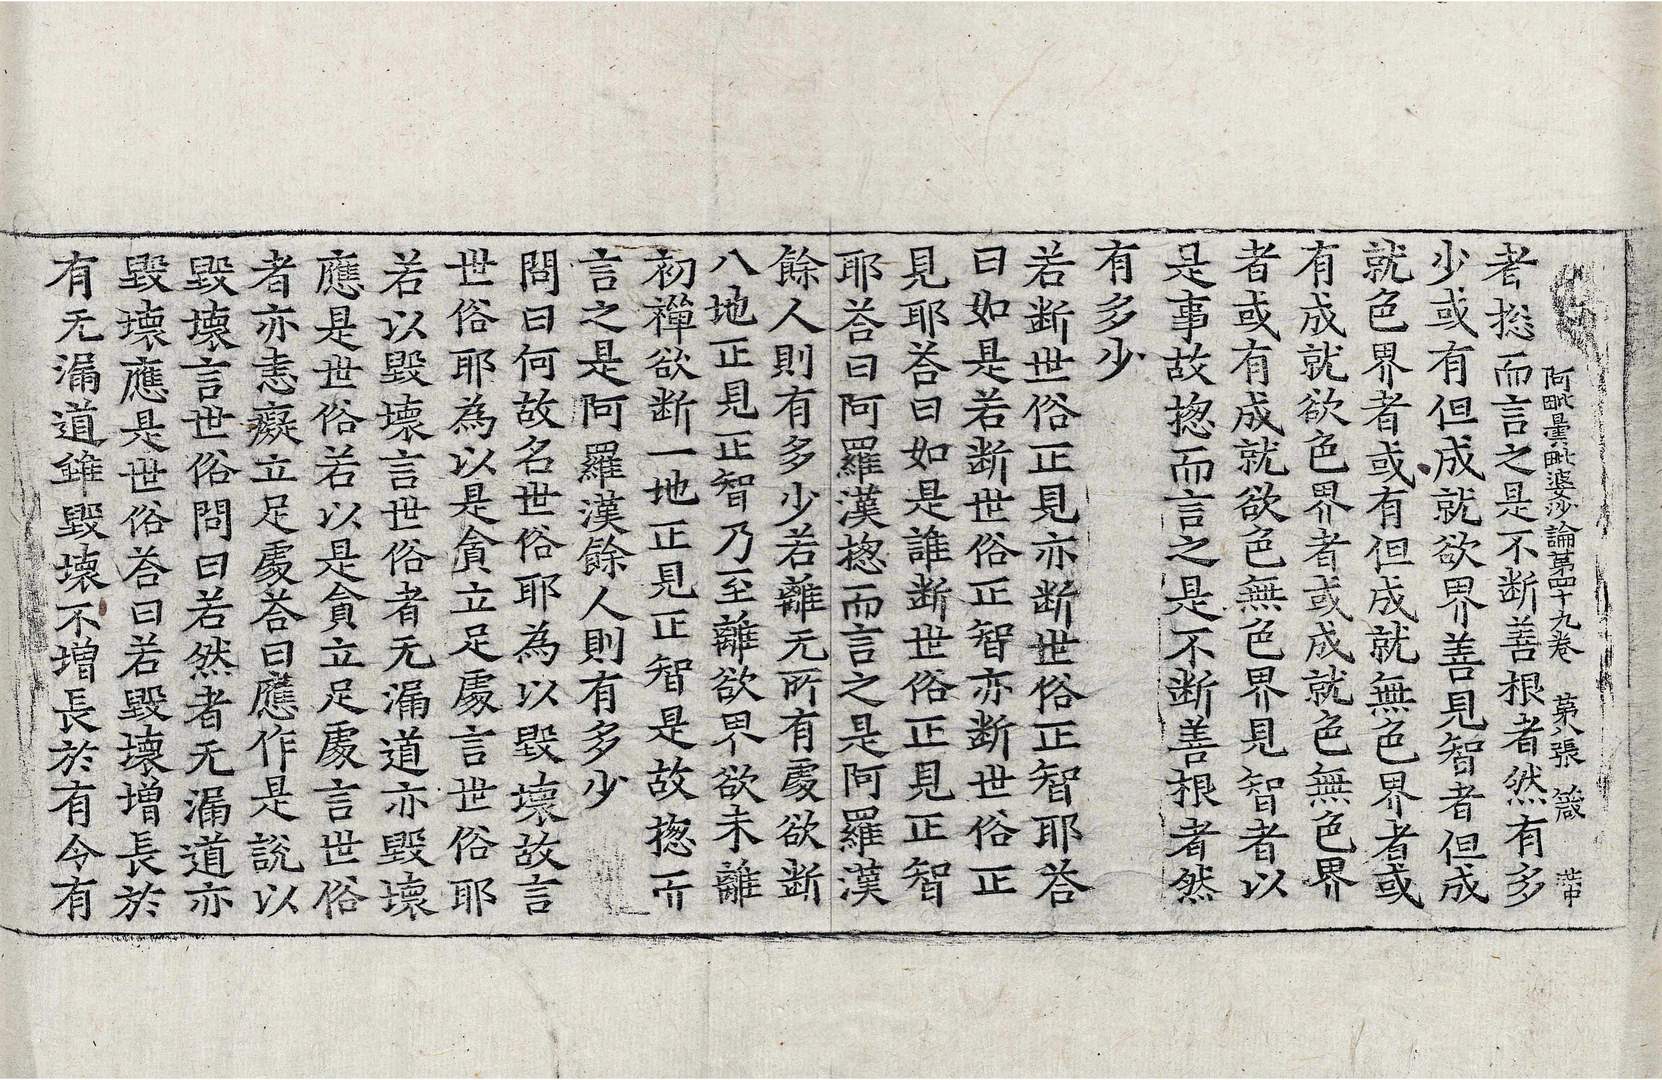 阿毗曇毗婆沙論第四十九卷 第八張 箴
者揔而言之是不断善根者然有多
少或有但成就欲界善見智者但成
就色界者或有但成就無色界者或
有成就欲色界者或成就色無色界
者或有成就欲色無色界見智者以
是事故揔而言之是不断善根者然
有多少
若断世俗正見亦断世俗正智耶荅
曰如是若断世俗正智亦断世俗正
見耶荅曰如是誰断世俗正見正智
耶荅曰阿羅漢揔而言之是阿羅漢
餘人則有多少若離无所有處欲断
八地正見正智乃至離欲界欲未離
初禪欲断一地正見正智是故揔而
言之是阿羅漢餘人則有多少
問曰何故名世俗耶為以毀壞故言
世俗耶為以是貪立足處言世俗耶
若以毀壞言世俗者无漏道亦毀壞
應是世俗若以是貪立足處言世俗
者亦恚癡立足處荅曰應作是說以
毀壞言世俗問曰若然者无漏道亦
毀壞應是世俗荅曰若毀壞增長於
有无漏道雖毀壞不增長於有令有